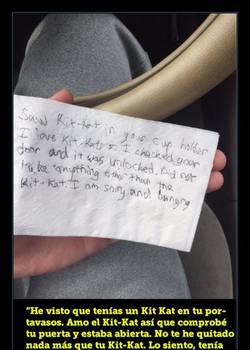 Saw Kit-Kat in your cup holder
I love Kit-Kats so I checked your
door and it was unlocked. Did not
take anything other than the
Kit-Kat. I am sorry and hungry
"He visto que tenías un Kit Kat en tu por-
tavasos. Amo el Kit-Kat así que comprobé
tu puerta y estaba abierta. No te he quitado
nada más que tu Kit-Kat. Lo siento, tenía